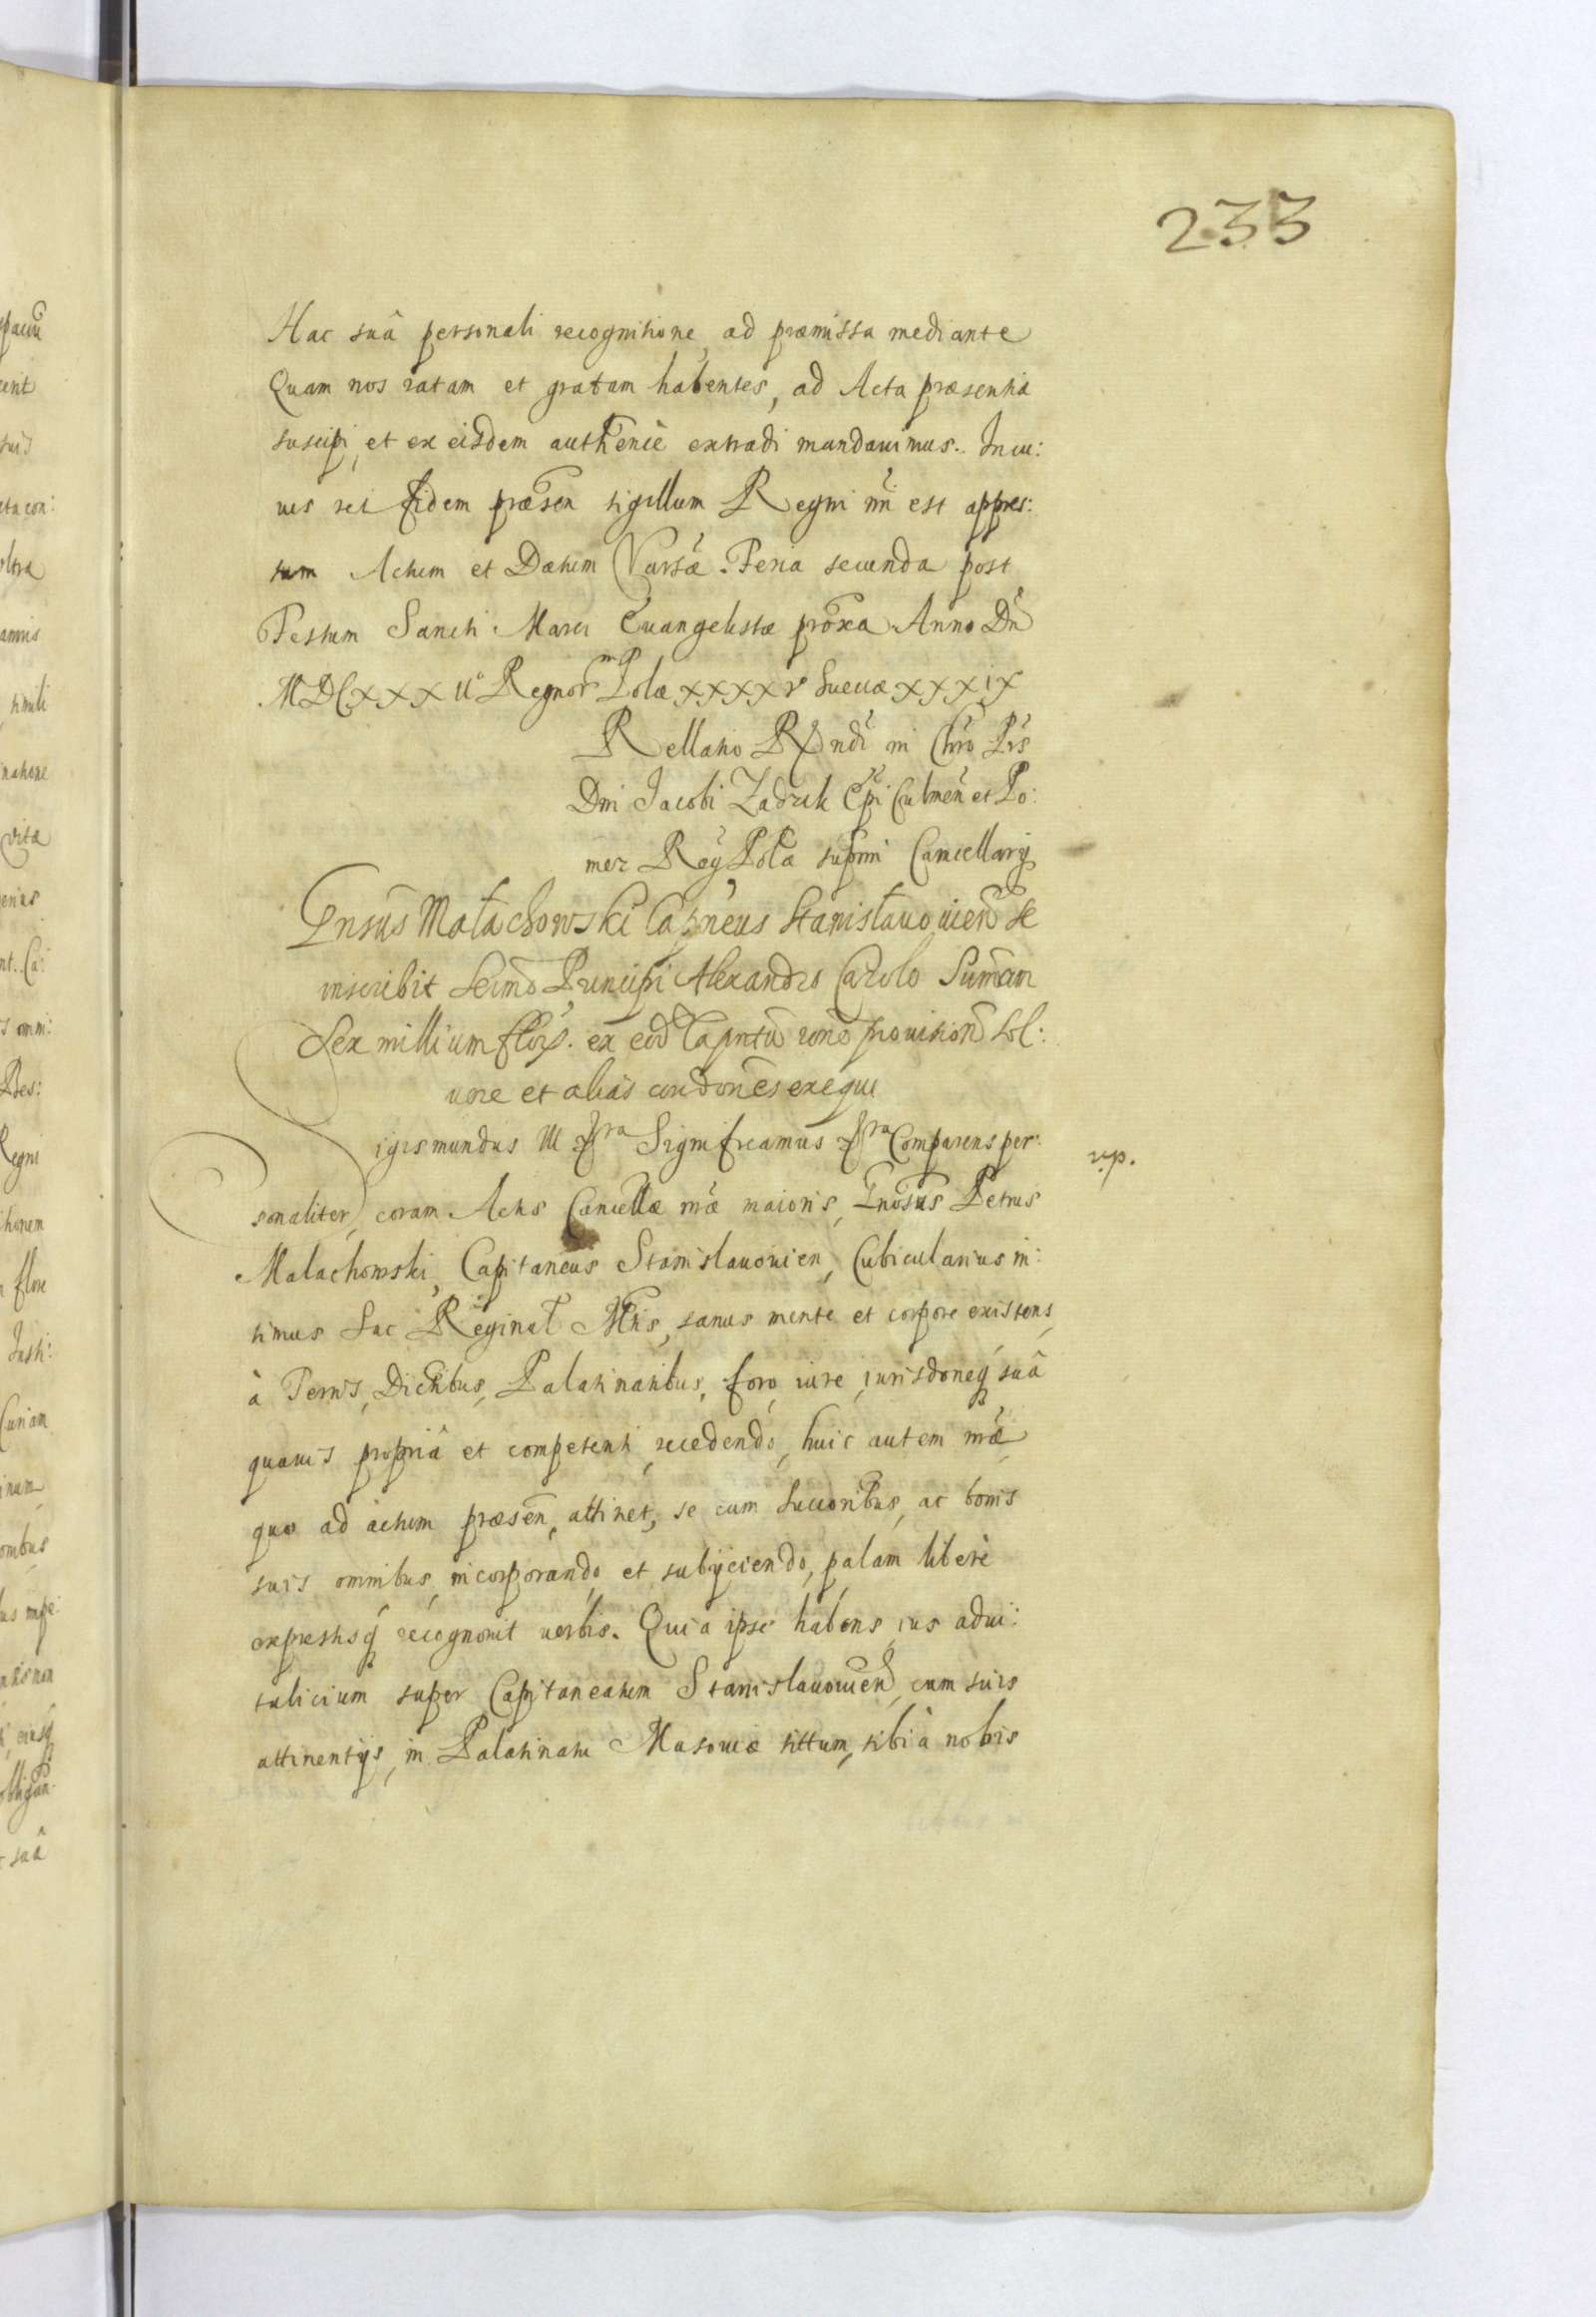 233
Hac suâ personali recognitione, ad præmissa mediante
Quam nos ratam et gratam habentes, ad Acta præsentia
suscipi, et ex eisdem authencè extradi mandauimus. In cu:
ius rei fidem præsen sigillum Regni nri est appres:
sum Actum et Datum Varsæ. Feria secunda post
Festum Sancti Marci Euangelistæ proxa Anno Dn
MDCXXXII° Regnor Polæ XXXXV Sueciæ XXXIX
Rellatio Rndi in Chro Pris
Dni Jacobi Zadzik Epi Culmen et Po:
mer Reg Polæ supmi Cancellarij
Gnsus Małachowski Capneus Stanisławouien se
inscribit Sermo Principi Alexandro Carolo Summam
Sex millium flor. ex eod Capntu rone prouision Sol:
uere et alias condones exequi
Sigismundus III &ra Significamus &ra Comparens per:
rip.
sonaliter, coram Actis Cancellæ nræ maioris, Gnosus Petrus
Malachowski, Capitaneus Stanislauouien, Cubicularius in:
timus Sac Reginal Mtis, sanus mente et corpore existens,
à Terris, Dictibus, Palatinatibus, foro, iure, iurisdoneq suâ
quauis propriâ et competenti, recedendo, huic autem nræ
quo ad actum præsen, attinet, se cum succoribus, ac bonis
suis omnibus, incorporando et subijciendo, palam liberè
expressisq recognouit uerbis. Quia ipse habens ius adui:
talicium super Capitaneatum Stanislauouien, cum suis
attinentijs, in Palatinatu Masouiæ sittum, sibi à nobis